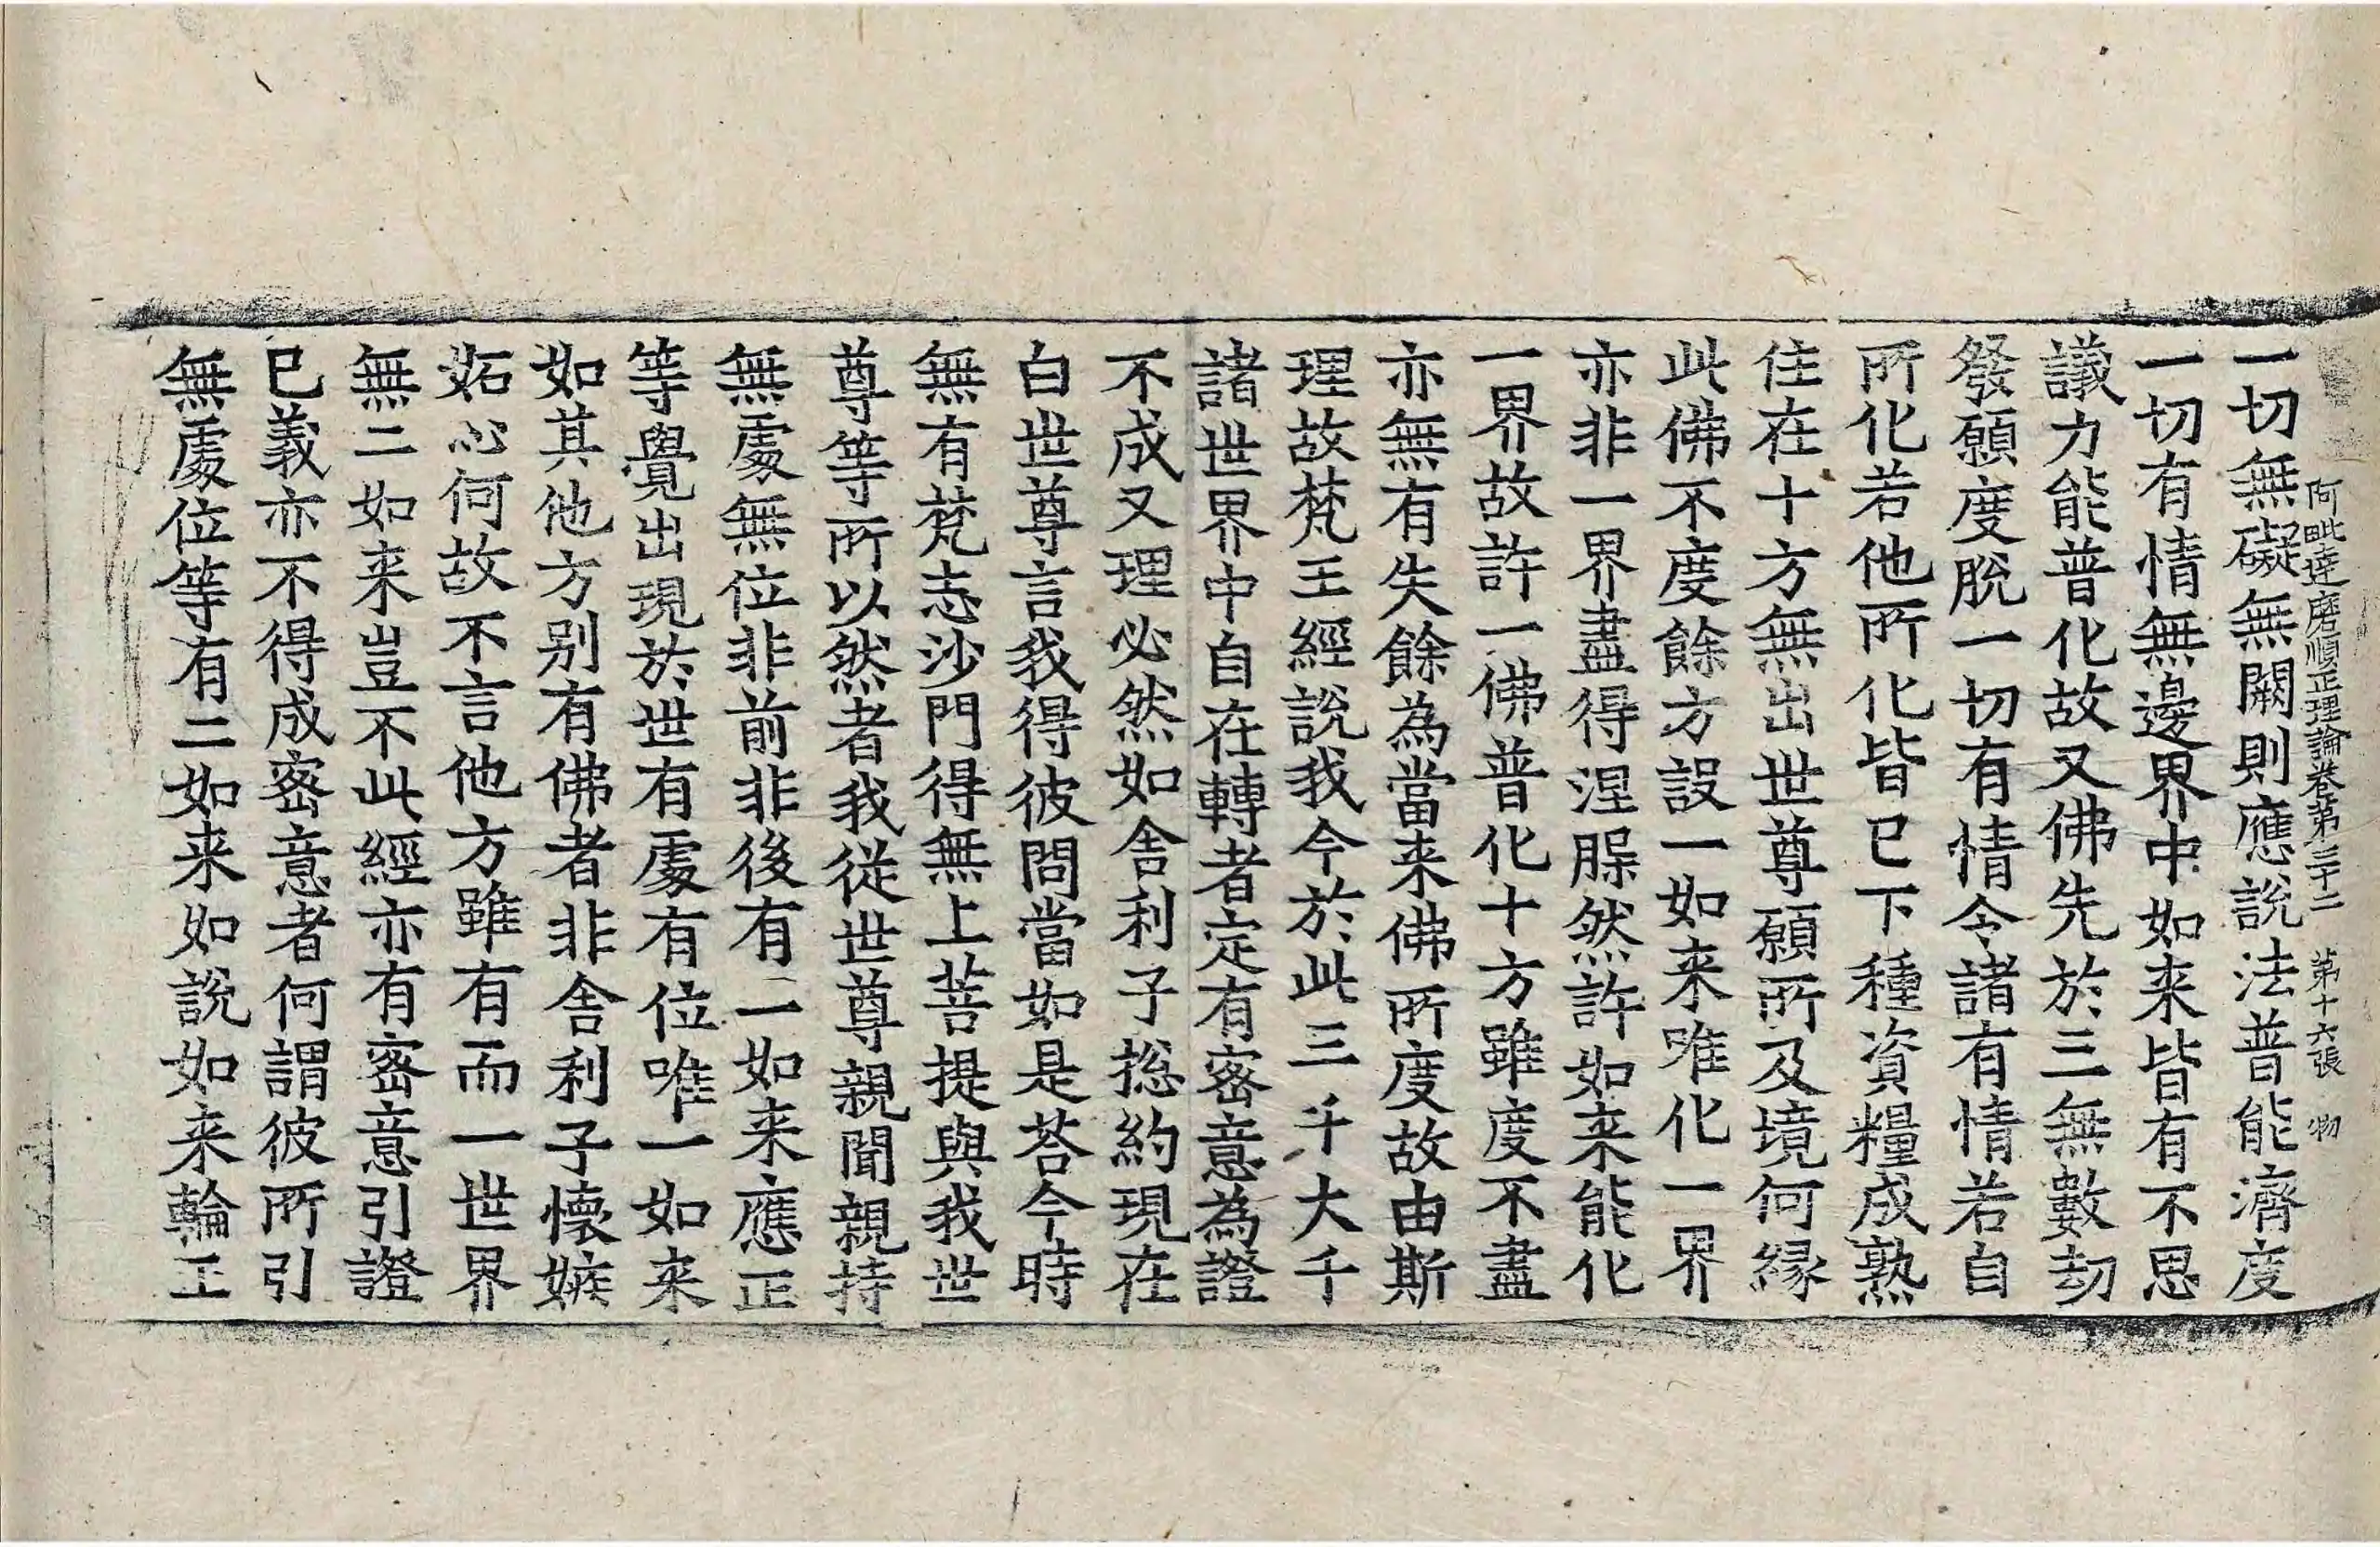 阿毗達磨順正理論卷第三十二 第十六張 物
一切無礙無闕則應說法普能濟度
一切有情無邊界中如来皆有不思
議力能普化故又佛先於三無數劫
發願度脫一切有情令諸有情若自
所化若他所化皆已下種資糧成熟
住在十方無出世尊願所及境何緣
此佛不度餘方設一如来唯化一界
亦非一界盡得涅槃然許如来能化
一界故許一佛普化十方雖度不盡
亦無有失餘為當来佛所度故由斯
理故梵王經說我今於此三千大千
諸世界中自在轉者定有密意為證
不成又理必然如舍利子捴約現在
白世尊言我得彼問當如是荅今時
無有梵志沙門得無上菩提與我世
尊等所以然者我從世尊親聞親持
無處無位非前非後有二如来應正
等覺出現於世有處有位唯一如来
如其他方别有佛者非舍利子懷嫉
妬心何故不言他方雖有而一世界
無二如来豈不此經亦有密意引證
已義亦不得成密意者何謂彼所引
無處位等有二如来如說如来輪王